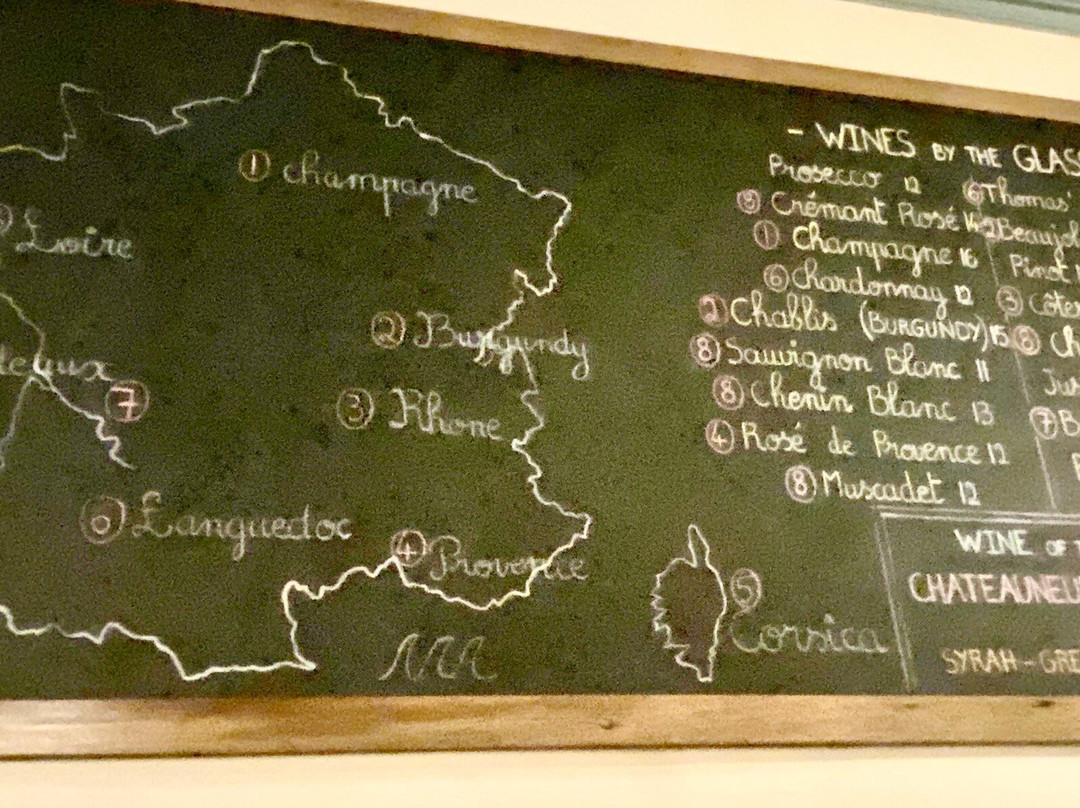 ① champagne
Loire
② Burgundy
③ Rhone
⑦
⑥ Languedoc
④ Provence
⑤
Corsica
- WINES BY THE GLAS
Prosecco 12
Crémant Rosé
① Champagne 16
⑥ Chardonnay 12
② Chablis (BURGUNDY) 15
⑧ Sauvignon Blanc 11
⑧ Chenin Blanc 13
④ Rosé de Provence 12
⑧ Muscadet 12
⑥ Thomas'
Beaujol
Pinot
③ Côtes
⑧ Ch
Jur
⑦ B
WINE OF T
CHATEAUNEU
SYRAH - GRE